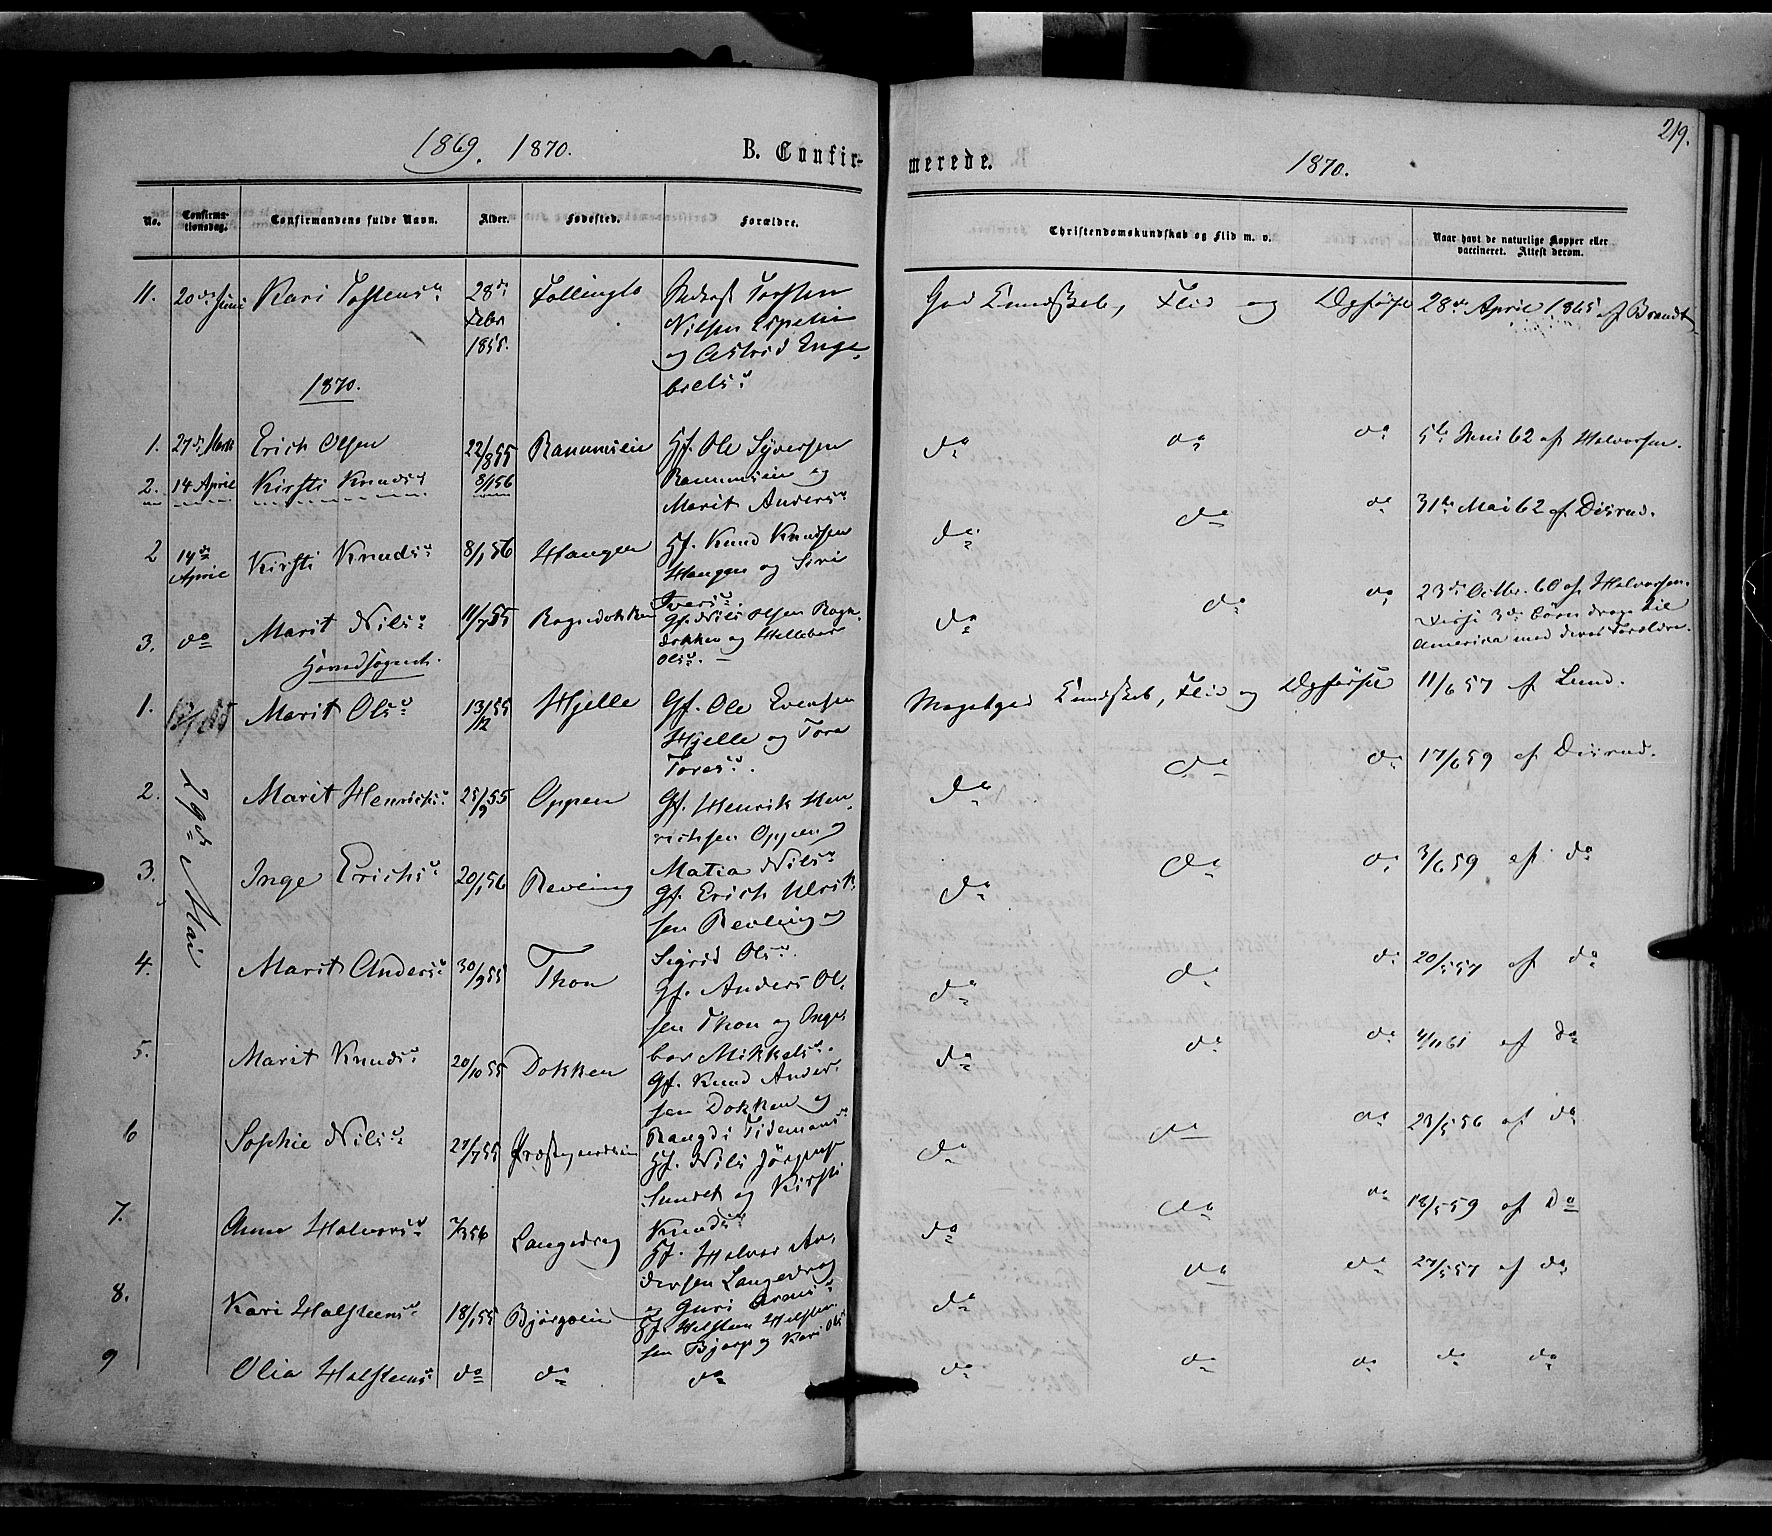 219.
1869. 1870.
B. Confir-
merede.
1870.
No.
Confirma-
tionsdag.
Confirmandens fulde Navn.
Alder.
Fødested.
Forældre.
Christendomskundskab og Flid m. v.
Naar havt de naturlige Kopper eller
vaccineret. Attest derom.
11. 20de Juni Kari Tostens.
28de
Febr
1855.
Torsten
Nilsen Espelie
og Astrid Enge-
brets.
God Kundskab, Flid og Opførsel 28de April 1865 af Brandt
1870.
1. 27de Marts Erich Olsen 22/8 55 Ranumseie Gf. Ole Syversen
do do do 5te Juni 62 af Halvorsen.
2. 14 April Kirsti Knuds 8/1 56
Ranumseie og
Marit Anders
2 14de
April
Kirsti Knuds. 8/1 56 Haugen Gf. Knud Knudsen
Haugen og Siri
Ivers.
do do do 31te Mai 62 af Disrud.
3. do Marit Nils. 11/7 55 Rognedokken Gf. Nils Olsen Rogn-
dokken og Hellebor
Ols.
do do do 23de Octbr. 60 af Halvorsen.
Disse 3de Børn drage til
Amerika med deres Forældre.
Hovedsognet.
1. Marit Ols. 13/12 55 Hjelle Gf. Ole Evensen
Hjelle og Tora
Tores.
Megetgod Kundskab, Flid og Opførsel 11/6 57 af Lund.
29de Mai
2. Marit Henrichs. 25/9 55 Oppen Gf. Henrik Hen-
richsen Oppen og
Matia Nils.
do do do 17/6 59 af Disrud.
3. Inge Erichs. 20/1 56 Revling Gf. Erich Ulrik-
sen Revling og
Sigrid Ols.
do do do 3/6 59 af do
4. Marit Anders. 30/9 55 Thon Gf. Anders Ol-
sen Thon og Inge-
bor Mikkels.
do do do 20/5 57 af do
5. Marit Knuds. 20/10 55 Dokken Gf. Knud Ander-
sen Dokken og
Rangdi Tidemans
do do do 4/11 61 af do
6 Sophie Nils. 27/7 55 Præstegaardseie Gf. Nils Jørgens
Sundet og Kirsti
Knuds
do do do 23/5 56 af do
7. Anne Halvors. 7/3 56 Langedrag Gf. Halvor An-
dersen Langedrag
og Guri Arnes.
do do do 18/5 59 af Do
8. Kari Halsteens. 18/1 55 Bjørgoeie Gf. Halsten Halsten-
sen Bjørgo og Kari Ols
do do do 27/5 57 af do
9 Olia Halsteens. do do do
do do do do do